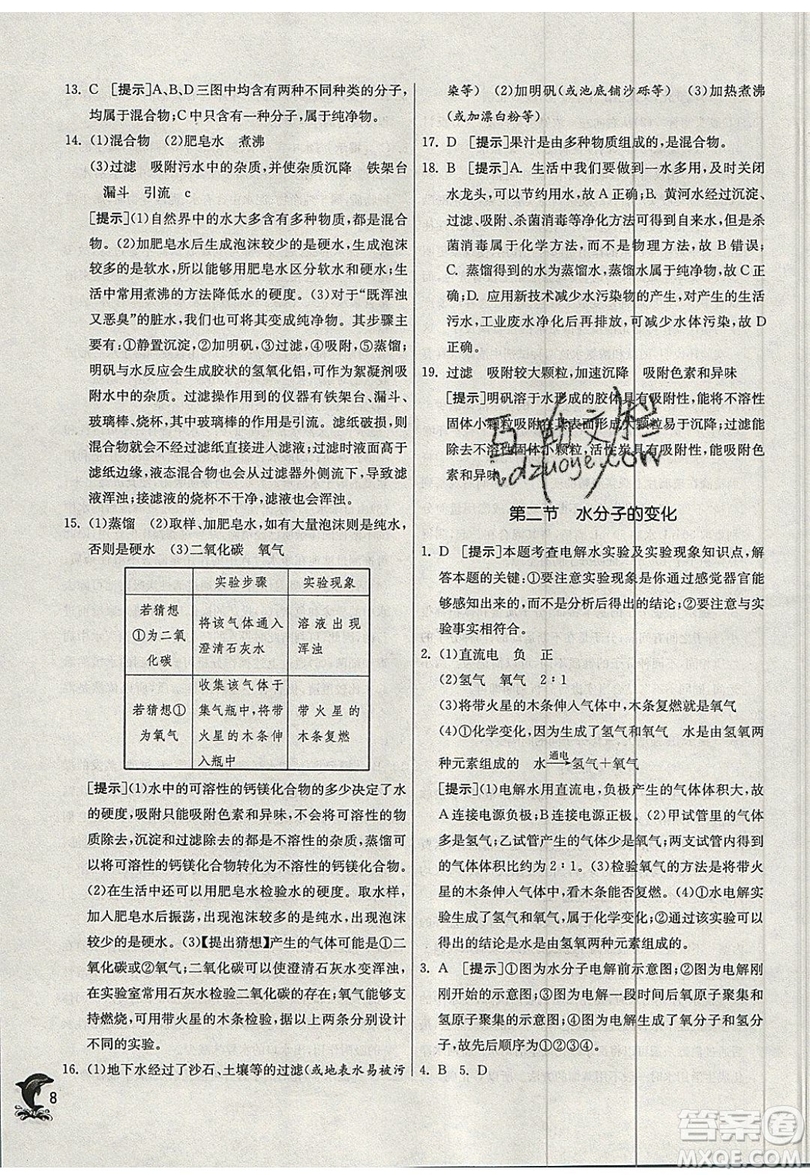 13. C [提示]A、B、D三图中均含有两种不同种类的分子,
均属于混合物;C中只含有一种分子,属于纯净物。
14. (1)混合物 (2)肥皂水 煮沸
(3)过滤 吸附污水中的杂质,并使杂质沉降 铁架台
漏斗 引流 c
[提示](1)自然界中的水大多含有多种物质,都是混合
物。(2)加肥皂水后生成泡沫较少的是硬水,生成泡沫
较多的是软水,常用肥皂水区分软水和硬水;生
活中常用煮沸的方法降低水的硬度。(3)对于“既浑浊
又恶臭”的脏水,我们也可将其变成纯净物。其步骤主
要有:①静置沉淀,②加明矾,③过滤,④吸附,⑤蒸馏。
明矾与水反应会生成胶状的氢氧化铝,可作为絮凝剂吸
附水中杂质。过滤用到的仪器有铁架台、漏斗、
玻璃棒、烧杯,其中玻璃棒的作用为引流。滤纸破损,则
混合物会不经过滤纸直接进入滤液;过滤时液面高于
滤纸边缘,液态混合物会从滤纸与滤器间隙流下,导致
滤液浑浊;接滤液的烧杯不干净,滤液也会浑浊。
15. (1)蒸馏 (2)取样、加肥皂水,如有大量泡沫则是纯水,
否则是硬水 (3)二氧化碳 氧气
实验步骤 实验现象
若猜想①为二氧化碳 将该气体通入澄清石灰水 溶液出现浑浊
若猜想①为氧气 收集该气体于集气瓶中,将带火星的木条伸入瓶中 带火星的木条复燃
[提示](1)水中的可溶性的钙镁化合物的多少决定了水
的硬度,吸附只能吸附色素和异味,不能除去可溶性的
杂质,沉淀和过滤除去的都是不溶性的杂质,蒸馏可
以将可溶性的钙镁化合物转化为不溶性的钙镁化合物。
(2)在生活中可以用肥皂水检验水的硬度,即取样,
加入肥皂水后振荡,出现泡沫较多的是纯水,出现泡
沫较少的是硬水。(3)【提出猜想】产生的气体可能是①二
氧化碳;②氧气;二氧化碳可以使澄清石灰水浑浊,
在实验室常用石灰水检验二氧化碳;氧气能够支
持燃烧,可用带火星的木条检验,可以按照两者分别设计
不同的实验。
16. (1)地下水经过了沙石、土壤等的过滤(或地表水易被污
染等) (2)加明矾(或池底铺沙砾等) (3)加热煮沸
(或加漂白粉等)
17. D [提示]果汁是由多种物质组成的,是混合物。
18. B [提示]A. 生活中我们要做一水多用,及时关闭
水龙头,可以节约用水,故 A 正确;B. 黄河水经过沉淀、
过滤、吸附、杀菌消毒等净化方法可得到生活用水,而
杀菌消毒属于化学方法,而不是物理方法,故 B 错误;
C. 蒸馏得到的水为蒸馏水,蒸馏水属于软水,故 C 正
确;D. 应用新技术减少水污染物的产生,对产生的生
活污水,工业废水净化后再排放,可减少水体污染,故 D
正确。
19. 过滤 吸附较大颗粒,加速沉降 吸附色素和异味
[提示]明矾溶于水形成的胶体具有吸附性,能将不溶性
固体小颗粒吸附在其表面形成大颗粒易于沉降;过滤
能去除不溶性固体小颗粒,活性炭具有吸附性,能吸附
色素和异味。
第二节 水分子的变化
1. D [提示]本题考查电解水实验及实验现象知识点,解
答本题的关键:①要注意实验现象是我们通过感觉器官能
够感知出来的,而不是得出的结论;②要注意与实
验事实相符合。
2. (1)直流电 负 正
(2)氢气 氧气 2∶1
(3)将带火星的木条伸入其中,木条复燃的就是氧气
(4)①化学变化,因为生成了氢气和氧气 水是由氢氧两
种元素组成的 水 通电→ 氢气＋氧气
[提示](1)电解水用直流电,负极产生的气体体积大,故
A连接电源负极;B连接电源的正极;(2)甲试管里的气
体多是氢气;乙试管中产生的气体少是氧气;两者产生
的气体体积约为 2∶1;(3)检验氧气的方法是将带火
星的木条伸入气体中,木条能否复燃。(4)水电解实验
得出的结论是水是由氢氧两种元素组成的。
3. A [提示]①图为水分子电解前示意图;②图为电解刚
刚开始的示意图;③图为电解一段时间后氧原子聚集和
氢原子聚集的示意图;④图为电解生成氧分子和氢分
子,故按先后顺序为①②③④。
4. B 5. D
8
答案圈
MXQE.COM